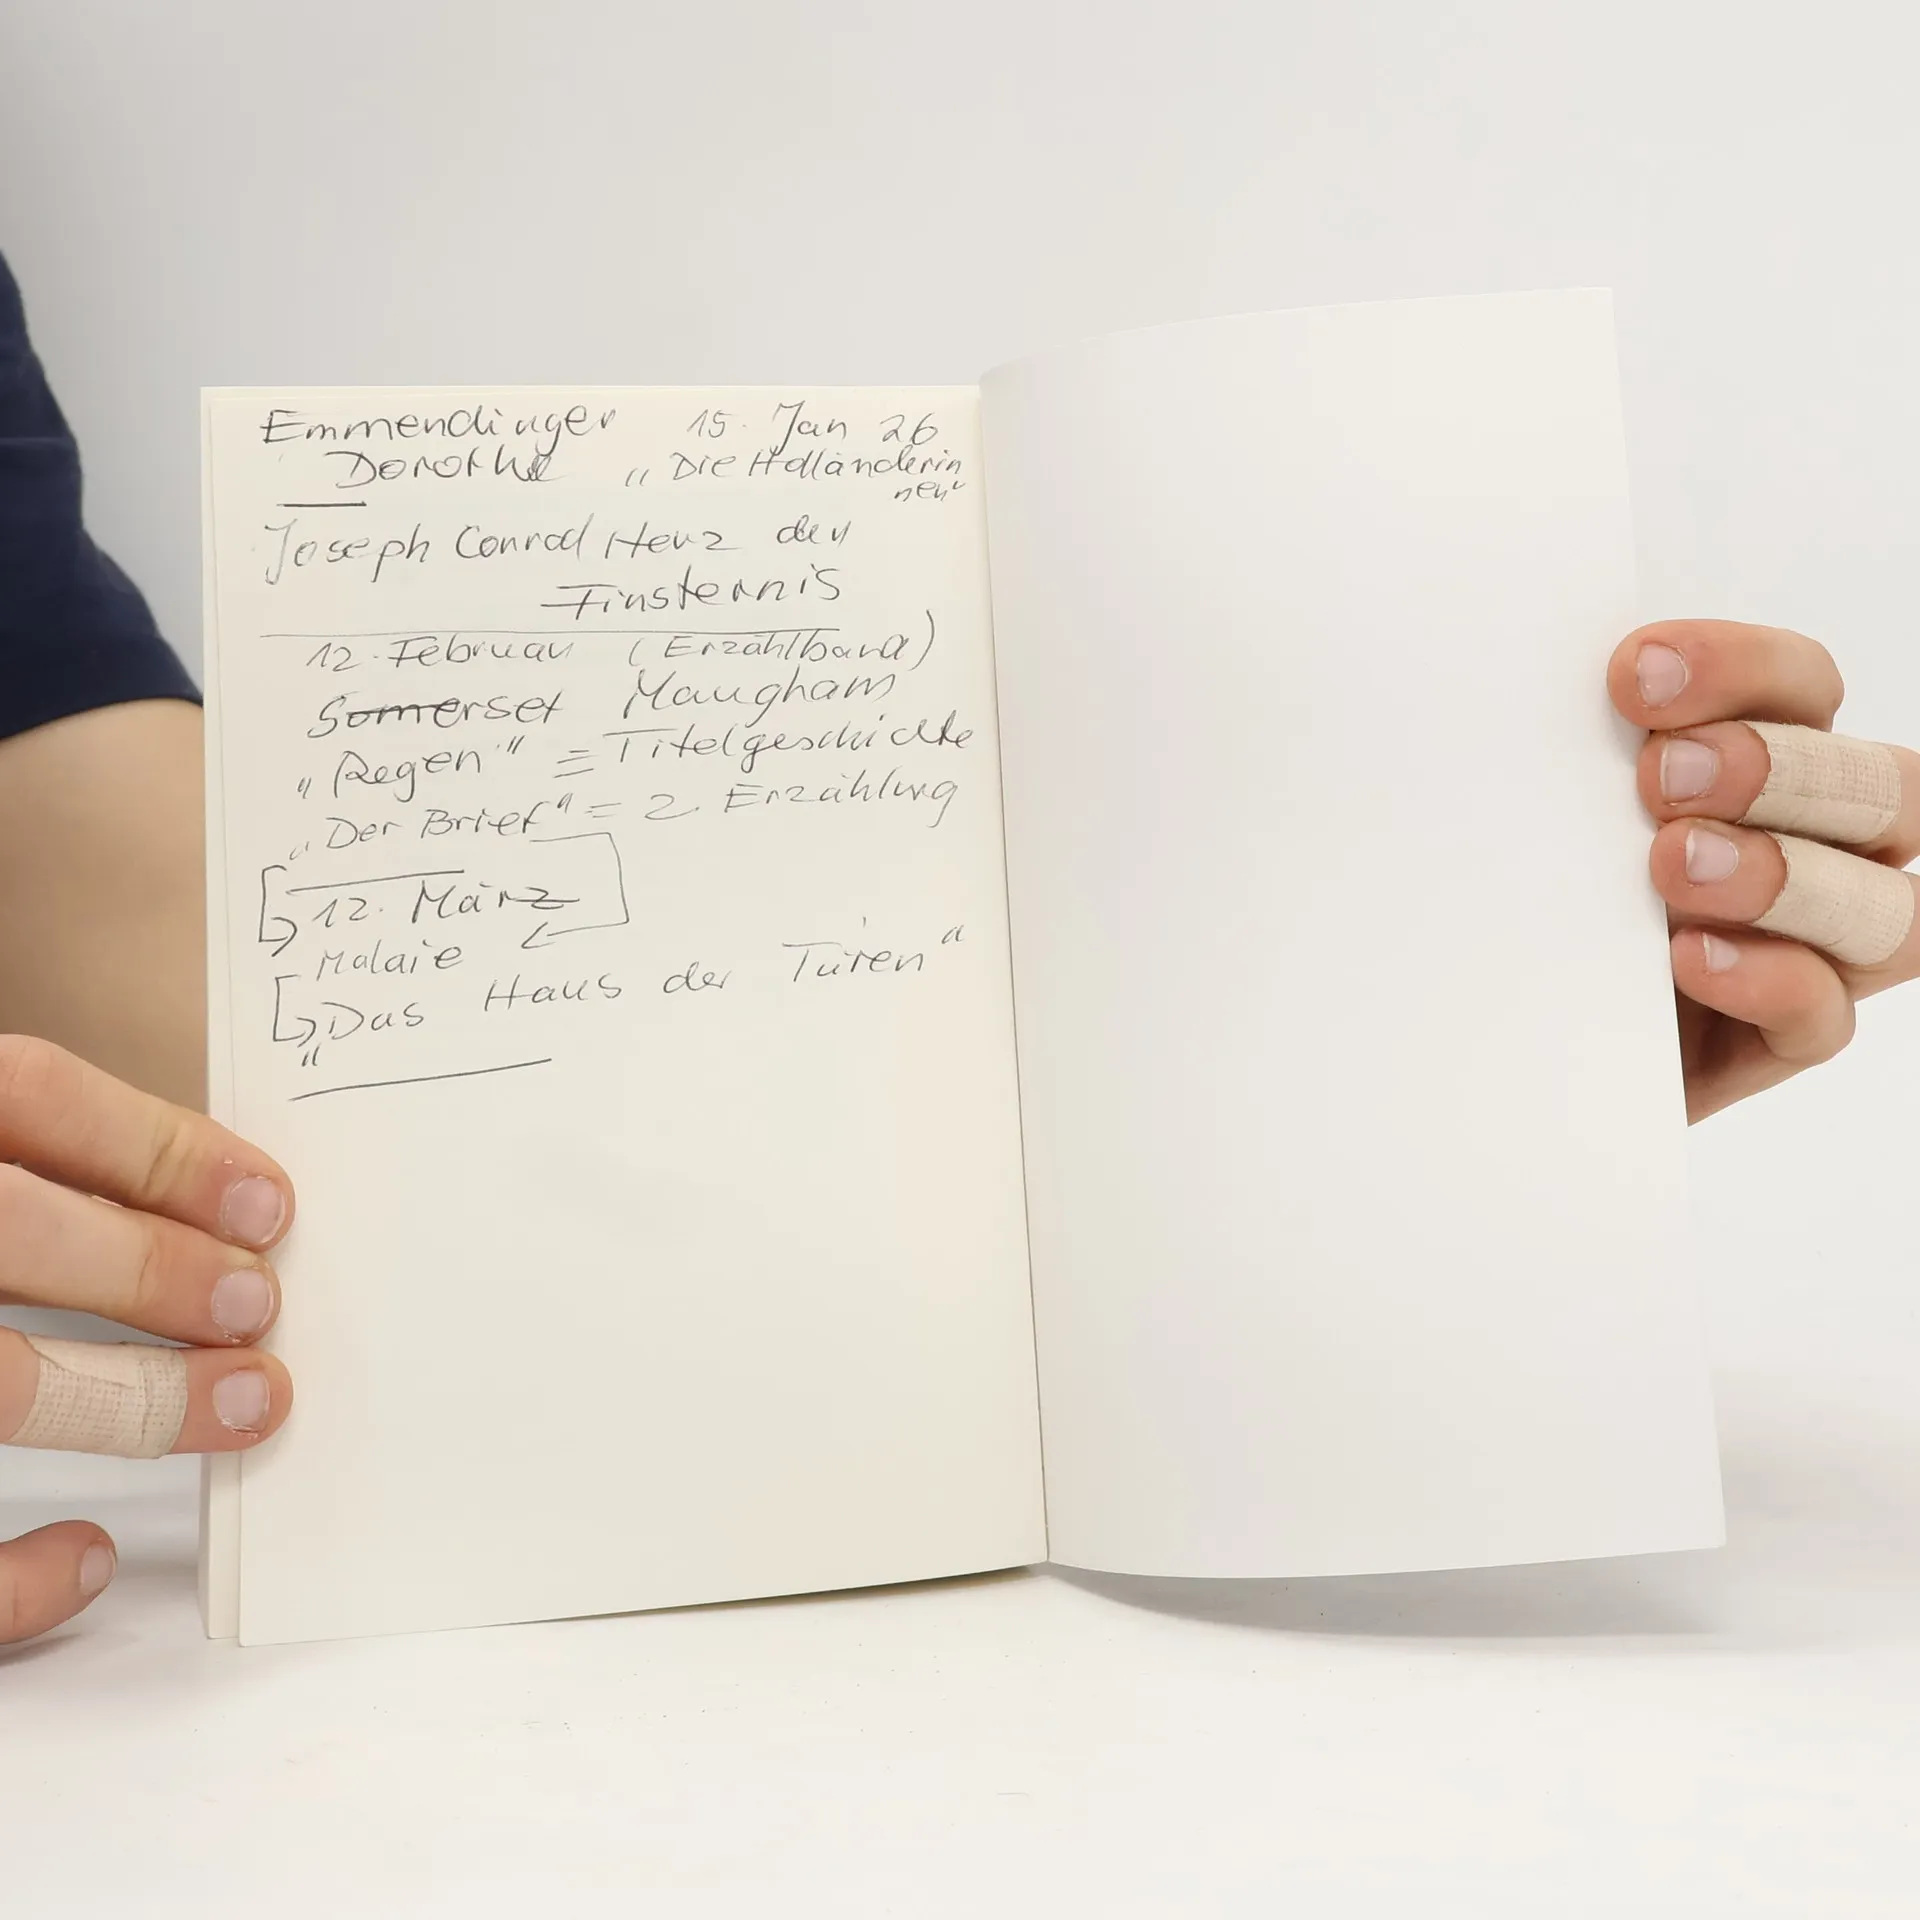 Emmendinger 15. Jan 26
Dorothe „Die Holländerin
nen“
Joseph Conrad Herz der
Finsternis
12. Februar (Erzählband)
Somerset Maugham
„Regen“ = Titelgeschichte
„Der Brief“ = 2. Erzählung
12. März
Malaie
„Das Haus der Türen“